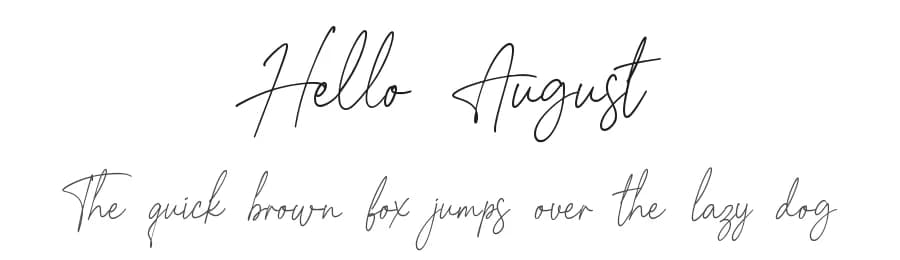 Hello August
The quick brown fox jumps over the lazy dog